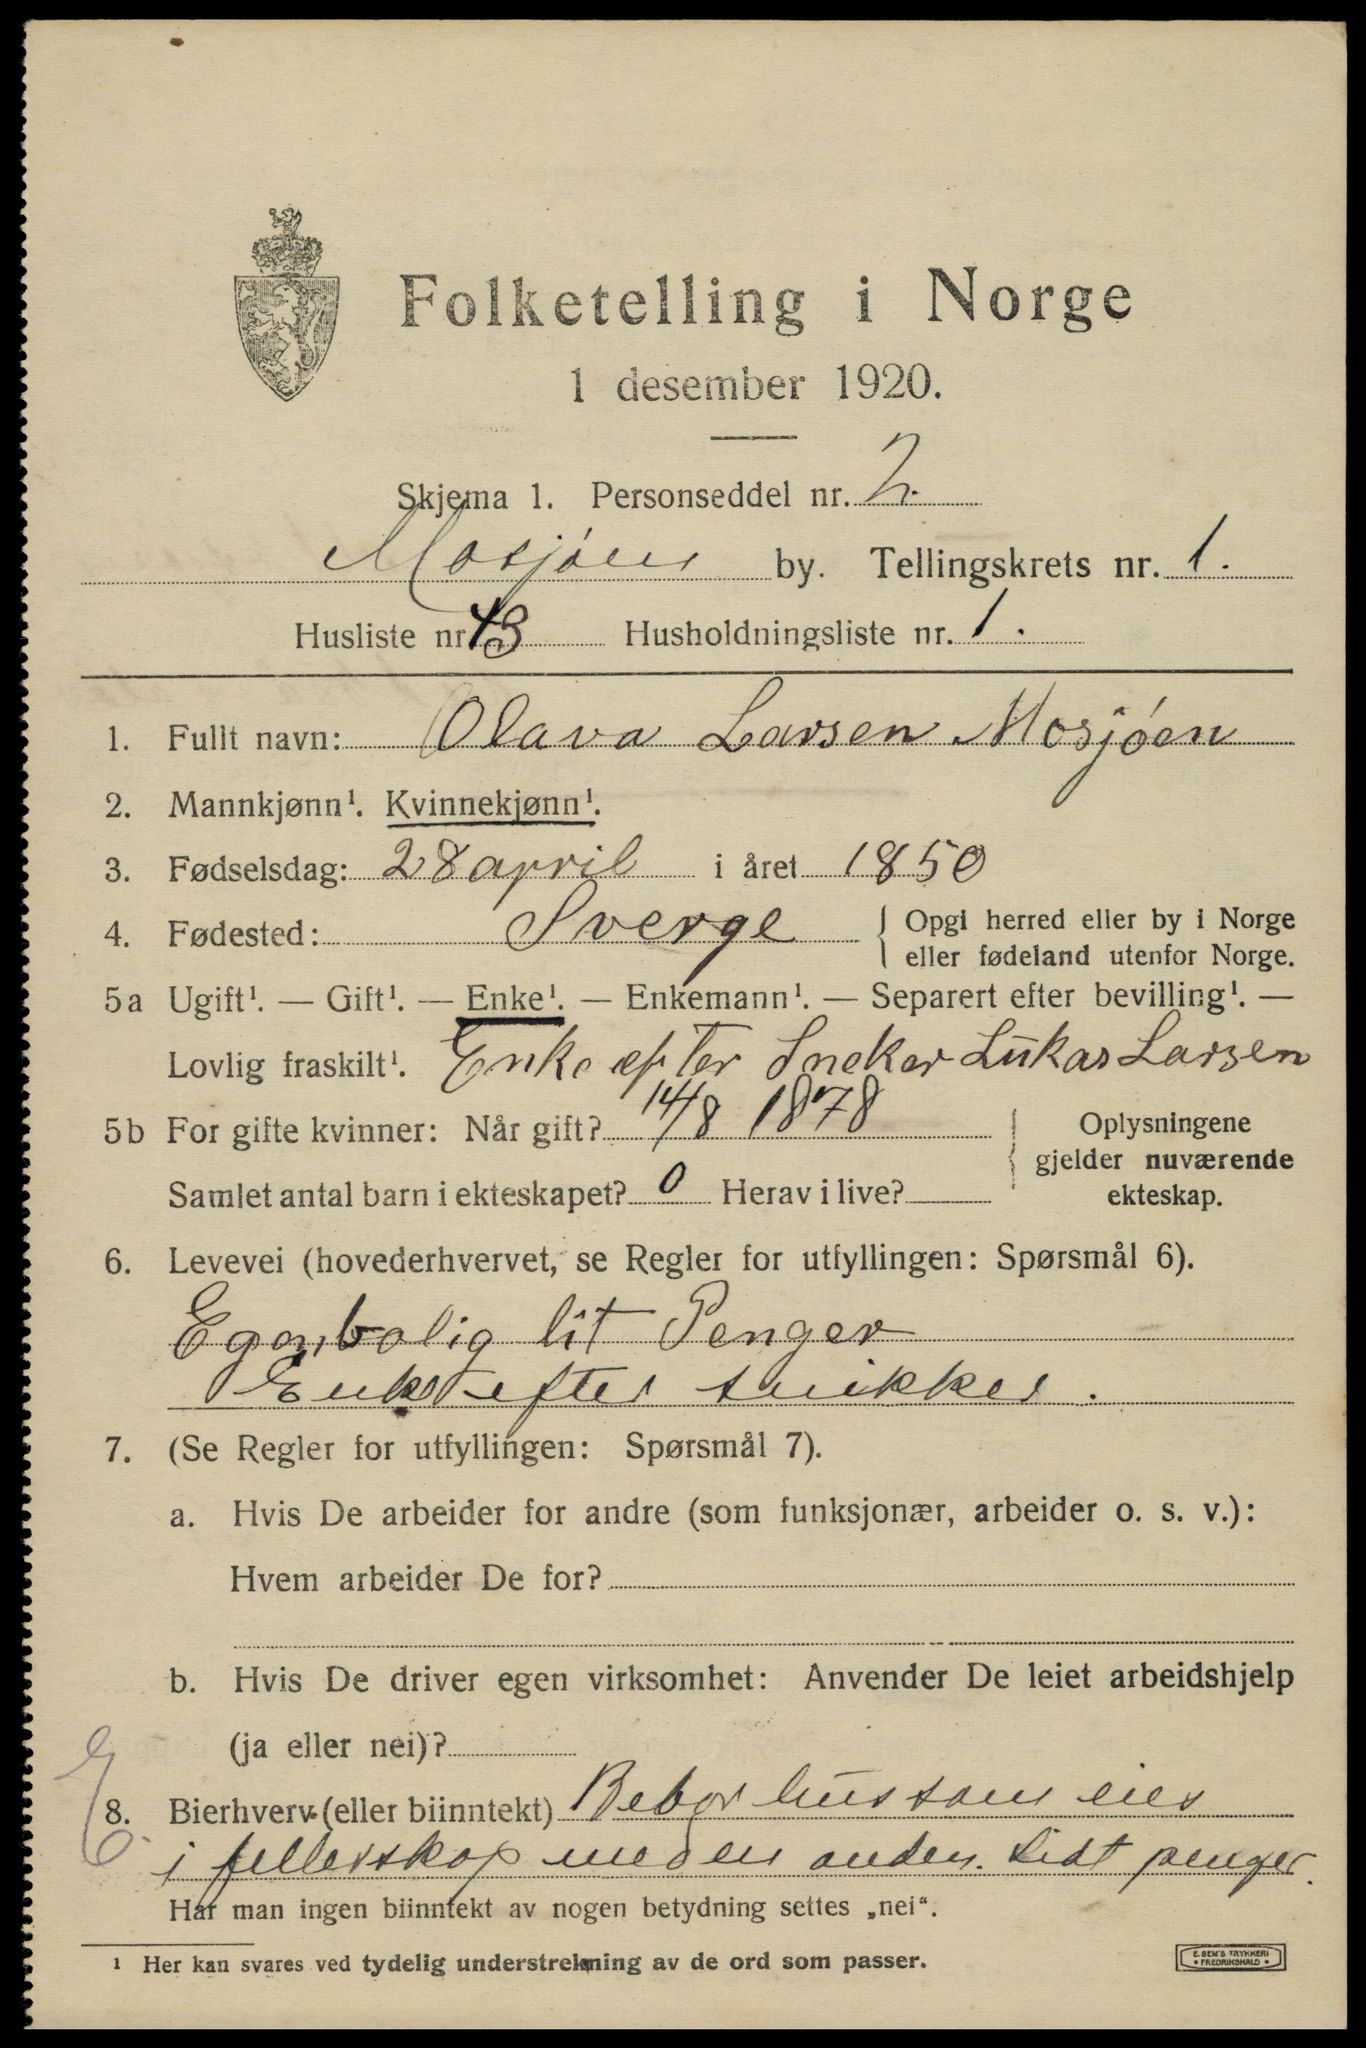 Folketelling i Norge
1 desember 1920.
Skjema 1. Personseddel nr. 2.
Mosjøen by. Tellingskrets nr. 1.
Husliste nr. 13 Husholdningsliste nr. 1.
1. Fullt navn: Olava Larsen Mosjøen
2. Mannkjønn¹. Kvinnekjønn¹.
3. Fødselsdag: 28 april i året 1850
4. Fødested: Sverge { Opgi herred eller by i Norge
eller fødeland utenfor Norge.
5a Ugift¹. — Gift¹. — Enke¹. — Enkemann¹. — Separert efter bevilling¹. —
Lovlig fraskilt¹. Enke efter Sneker Lukas Larsen
5b For gifte kvinner: Når gift? 14/8 1878
Samlet antal barn i ekteskapet? 0 Herav i live?
Oplysningene
gjelder nuværende
ekteskap.
6. Levevei (hovederhvervet, se Regler for utfyllingen: Spørsmål 6).
Egen bolig lit Penger
Enke efter snikker.
7. (Se Regler for utfyllingen: Spørsmål 7).
a. Hvis De arbeider for andre (som funksjonær, arbeider o. s. v.):
Hvem arbeider De for?
b. Hvis De driver egen virksomhet: Anvender De leiet arbeidshjelp
(ja eller nei)?
8. Bierhverv (eller biinntekt) Bebor hus som eies
i fellesskap med en anden. Lidt penger.
Har man ingen biinntekt av nogen betydning settes „nei“.
¹ Her kan svares ved tydelig understrekning av de ord som passer.
E. SEM'S TRYKKERI
• FREDRIKSHALD •